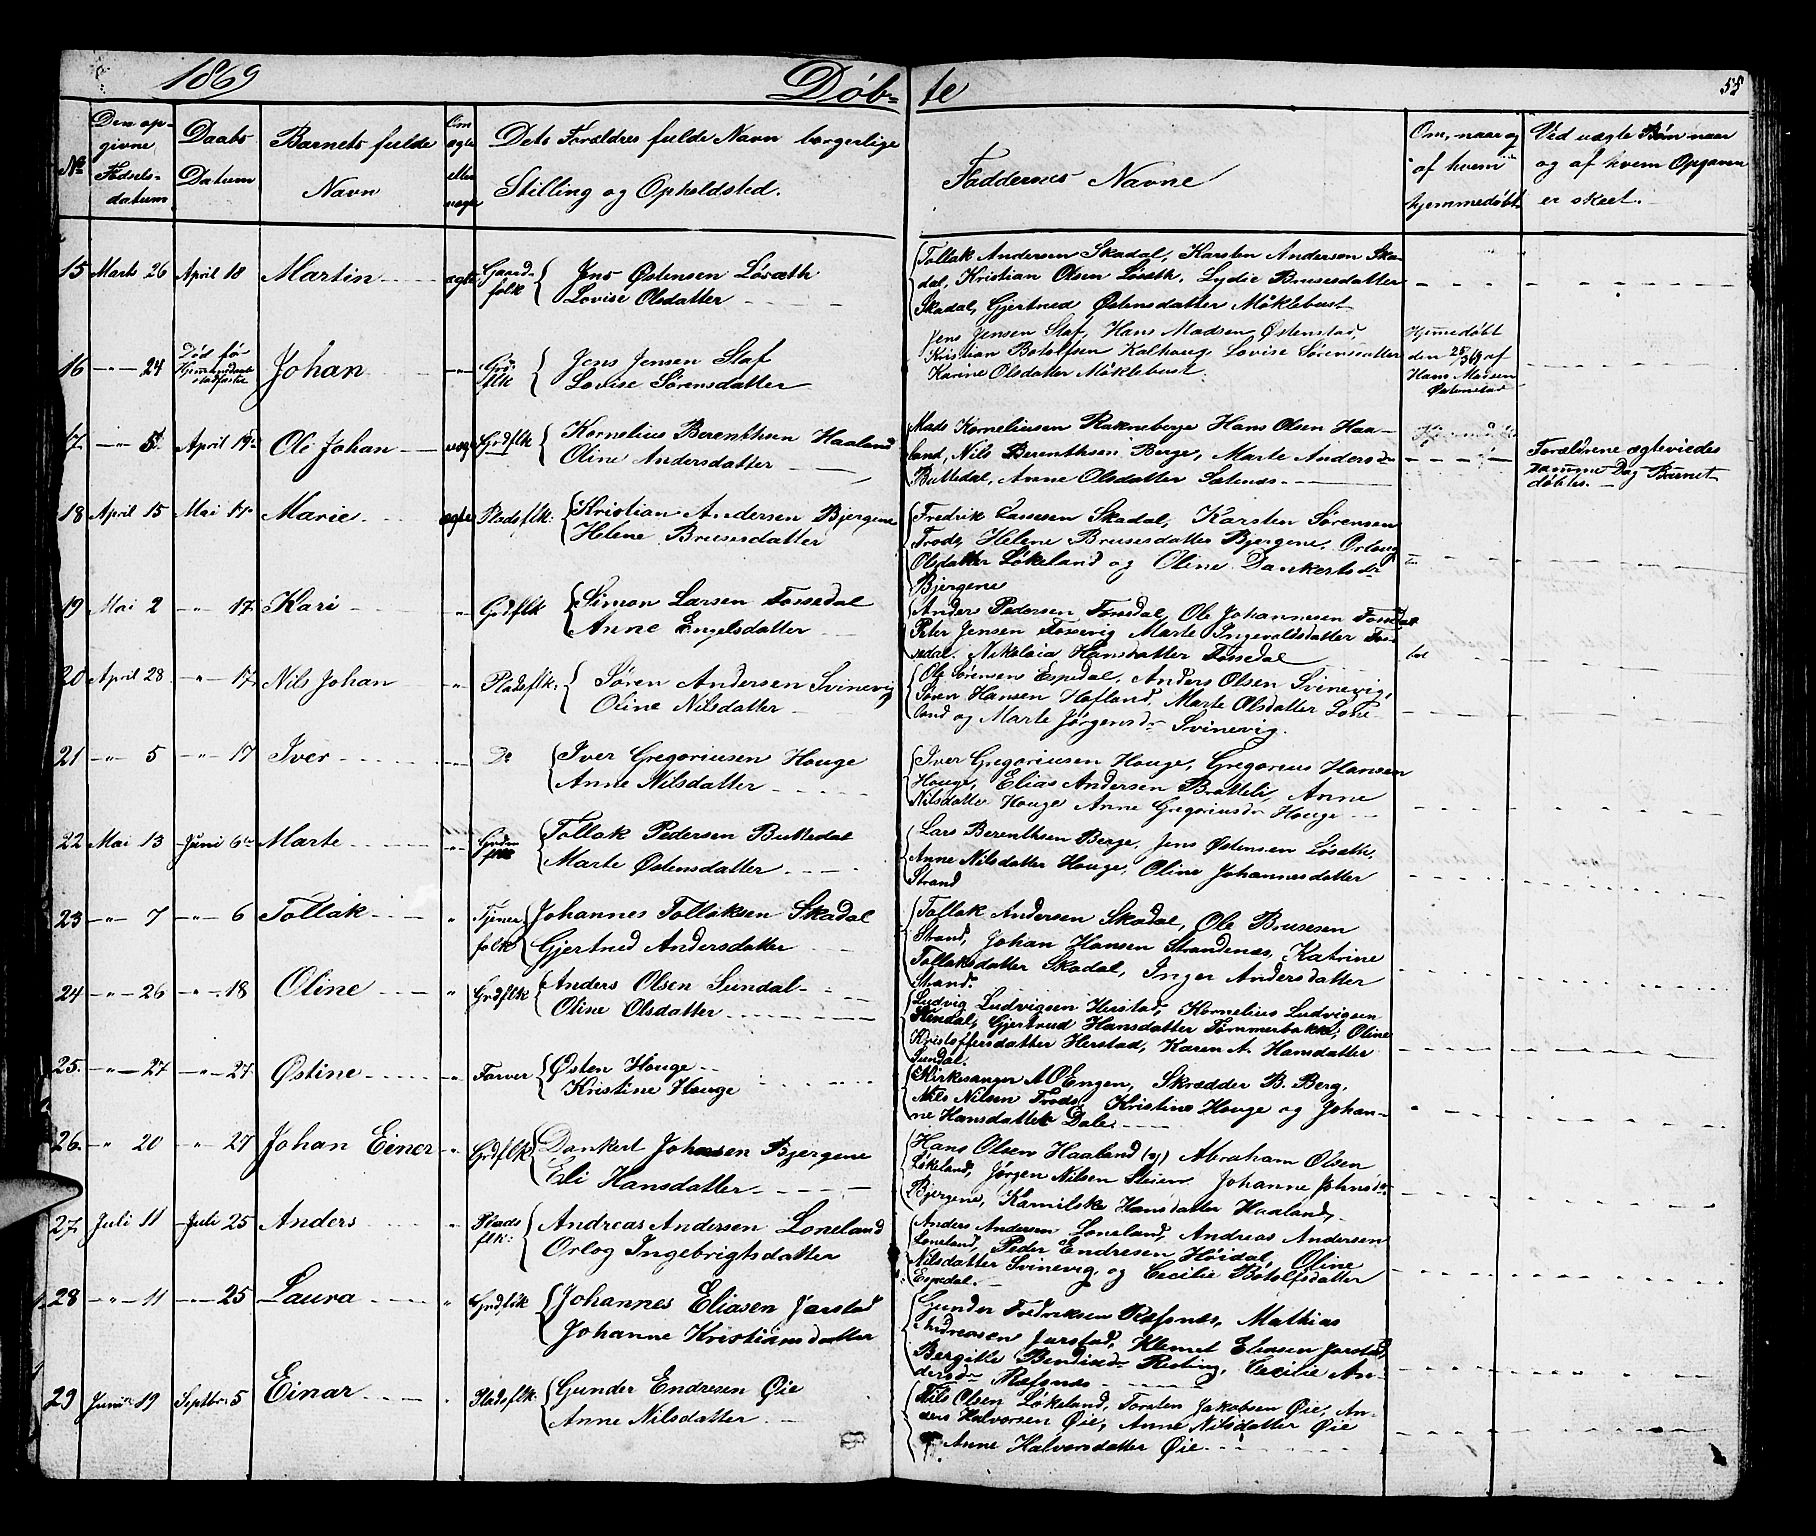 1869 Døb- te 55
No
Den op-
givne
Fødsels-
datum
Daabs
Datum
Barnets fulde
Navn
Om
ægte
eller
uægte
Dets Forældres fulde Navn borgerlige
Stilling og Opholdsted.
Faddernes Navne
Om, naar og
af hvem
hjemmedøbt.
Ved uægte Børn naar
og af hvem Opgaven
er skeet.
15 Marts 26 April 18 Martin ægte Gaard-
folk
Jens Østensen Løsæth
Lovise Olsdatter
Tollak Andersen Skadal, Karsten Andersen Ska-
dal, Kristian Olsen Løseth, Lydie Brusesdatter
Skadal, Gjertrud Østensdatter Møklebust
16 -"- 24 Død før
stadfæstet Johan -"- Grd
flk
Jens Jensen Staf
Lovise Sørensdatter
Jens Jensen Staf, Hans Madsen Østenstad,
Kristian Botolfsen Kalhoug, Lovise Sørensdatter
Karine Olsdatter Møklebust.
Hjemmedøbt
den 25/3 69 af
Hans Madsen
Østenstad
17 -"- 5 April 19 Ole Johan uægte Grdflk
Kornelius Berenthsen Haaland
Oline Andersdatter
Mads Korneliusen Rakneberge Hans Olsen Haa-
land, Nils Berenthsen Berge, Marte Andersdr
Buttedal, Anne Olsdatter Sætenes.
Forældrene ægteviedes
samme Dag Barnet
døbtes.
18 April 15 Mai 17 Marie ægte Pladsflk:
Kristian Andersen Bjergene
Helene Brusesdatter
Fredrik Lassesen Skadal, Karsten Sørensen
Trods, Helene Brusesdatter Bjergene, Orloug
Olsdatter Løkeland og Oline Dankertsdr
Bjergene
19 Mai 2 -"- 17 Kari " Grdflk
Simon Larsen Fossedal
Anne Engelsdatter
Anders Pedersen Fossedal, Ole Johannesen Fossdal
Peter Jensen Fossevig Marte Ingevaldsdatter Fos-
sedal. Nikolaia Hansdatter Fossedal
20 April 28 -"- 17 Nils Johan " Pladsflk:
Søren Andersen Svinevig
Oline Nilsdatter
Ole Sørensen Espedal, Anders Olsen Svinevig,
Søren Hansen Hofland, Marte Olsdatter Lone-
land og Marte Jørgensdr Svinevig.
21 -"- 5 -"- 17 Iver -"- Do
Iver Gregoriusen Houge
Anne Nilsdatter
Iver Gregoriusen Houge, Gregorius Hansen
Houge, Elias Andersen Bratteli, Anne
Nilsdatter Houge Anne Gregoriusdr Houge
22 Mai 13 Juni 6te Marte -"-
Tollak Pedersen Buttedal
Marte Østensdatter
Lars Berenthsen Berge, Jens Østensen Løseth,
Anne Nilsdatter Houge, Oline Johannesdatter
Strand
23 -"- 7 -"- 6 Tollak " Tjener
folk
Johannes Tollaksen Skadal
Gjertrud Andersdatter
Tollak Andersen Skadal, Ole Brusesen
Strand, Johan Hansen Strandenæs, Katrine
Tollaksdatter Skadal, Inger Andersdatter
Strand.
24 -"- 26 -"- 18 Oline " Grdflk
Anders Olsen Sundal
Oline Olsdatter
Ludvig Ludvigsen Herstad, Kornelius Ludvigsen
Stendal, Gjertrud Hansdatter Tømmerbakke, Oline
Kristoffersdatter Herstad, Karen A. Hansdatter
Sundal.
25. -"- 27 -"- 27 Østine -"- Farver
Østen Houge
Kristine Houge
Kirkesanger A O Engen, Skrædder B. Berg.
Nils Nilsen Trods, Kristine Houge og Johan-
ne Hansdatter Dale.
26. " 20 -"- 27 Johan Einer " Grdflk
Dankert Johnsen Bjergene
Eli Hansdatter
Hans Olsen Haaland Abraham Olsen
Løkeland, Jørgen Nilsen Steien, Johanne Johnsdr
Bjergene, Kamilske Hansdatter Haaland,
27. Juli 11 Juli 25 Anders " Plads
flk:
Andreas Andersen Loneland
Orlog Ingebrigtsdatter
Anders Andersen Loneland, Andreas Andersen
Loneland, Peder Endresen Høidal, Oline
Nilsdatter Svinevig, og Cecilie Botolfsdatter
Espedal.
28 -"- 11 -"- 25 Laura " Grdflk
Johannes Eliasen Jarstad
Johanne Kristiansdatter
Gunder Fredriksen Ræfsnæs, Mathias
Andreasen Jarstad, Klemet Eliasen Jarstad,
Bergitte Bendiksdr Risting, Cecilie An-
dersdr Refsnæs
29 Juni 19 Septbr 5 Einar " Pladsflk:
Gunder Endresen Øie
Anne Nilsdatter
Nils Olsen Løkeland, Torsten Jakobsen Øie, An-
ders Halvorsen Øie, Anne Nilsdatter Øie
Anne Halvorsdatter Øie.